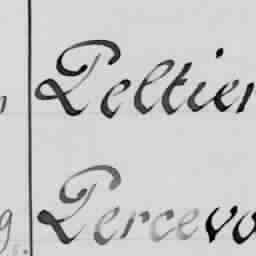 Peltier
Percevo